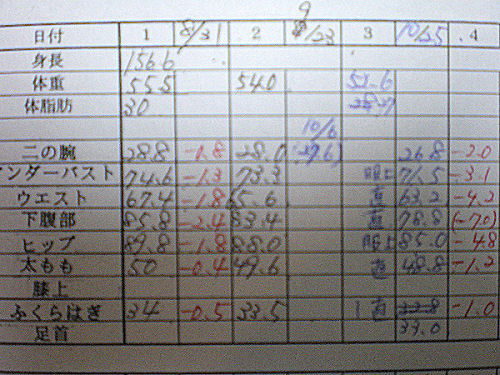 日付 1 8/31 2 9/23 3 10/25 4
身長 156.6
体重 55.5 54.0 51.6
体脂肪 30
10/6
二の腕 28.8 -0.8 28.0 (27.6) 26.8 -2.0
ンダーバスト 74.6 -1.3 73.3 71.5 -3.1
ウエスト 67.4 -1.8 65.6 直 63.2 -4.2
下腹部 85.8 -2.4 83.4 直 78.8 (-7.0)
ヒップ 89.8 -1.8 88.0 85.0 -4.8
太もも 50 -0.4 49.6 直 48.8 -1.2
膝上
ふくらはぎ 34 -0.5 33.5 直 33.8 -1.0
足首 33.0